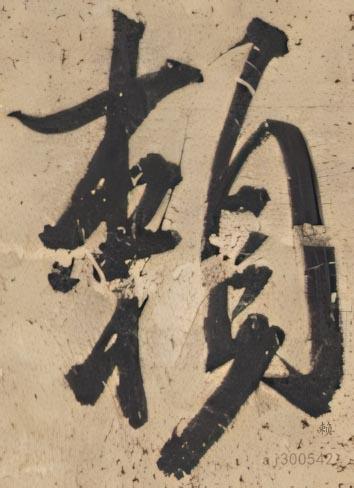 頼
赖
aj300542